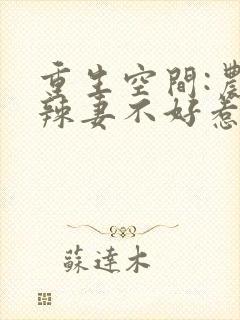 重生空間:農
辣妻不好惹
蘇達木